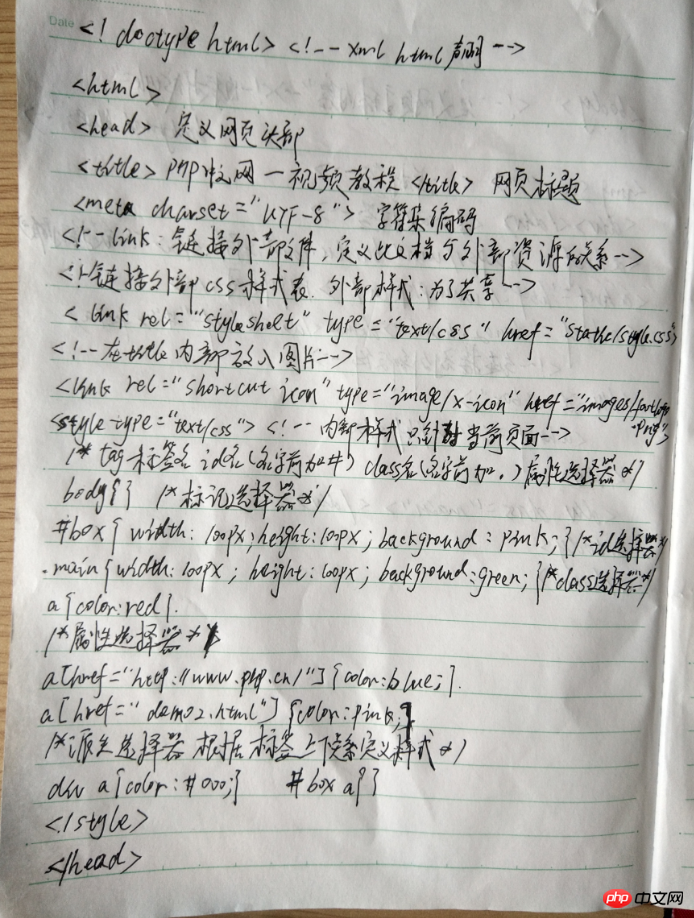 Date
<! doctype html> <!-- xml html 声明 -->
<html>
<head> 定义网页头部
<title> PHP中文网一视频教程 </title> 网页标题
<meta charset="UTF-8"> 字符集编码
<!-- link: 链接外部文件, 定义此文档与外部资源的关系-->
<!-链接外部css样式表. 外部样式:为了共享-->
<link rel="styleshelt" type="text/css" href="static/style.css">
<!--在title内部放入图片-->
<link rel="shortcut icon" type="image/x-icon" href="images/
.png">
<style type="text/css"> <!-- 内部样式只针对当前页面-->
/* tag标签名 id名(名字前加#) class名(名字前加.) 属性选择器*/
body{} /*标记选择器*/
#box{ width: 100px; height:100px; background: pink; } /*id选择器*/
.main{width:100px; height:100px; background:green; } /*class选择器*/
a{color:red}.
/*属性选择器*/
a[href="http://www.php.cn/"]{color:blue;}.
a[href="demo2.html"] {color:pink;}
/*派生选择器 根据标签上下关系定义样式*/
div a{color:#000;} #box a{}
</style>
</head>
php 中文网